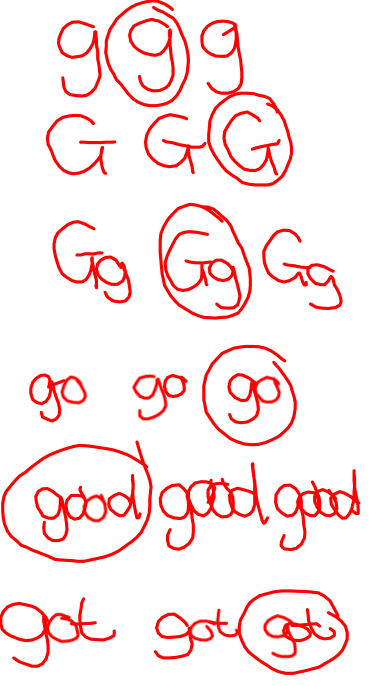 g g g
G G G
Gg Gg Gg
go go go
good good good
got got got